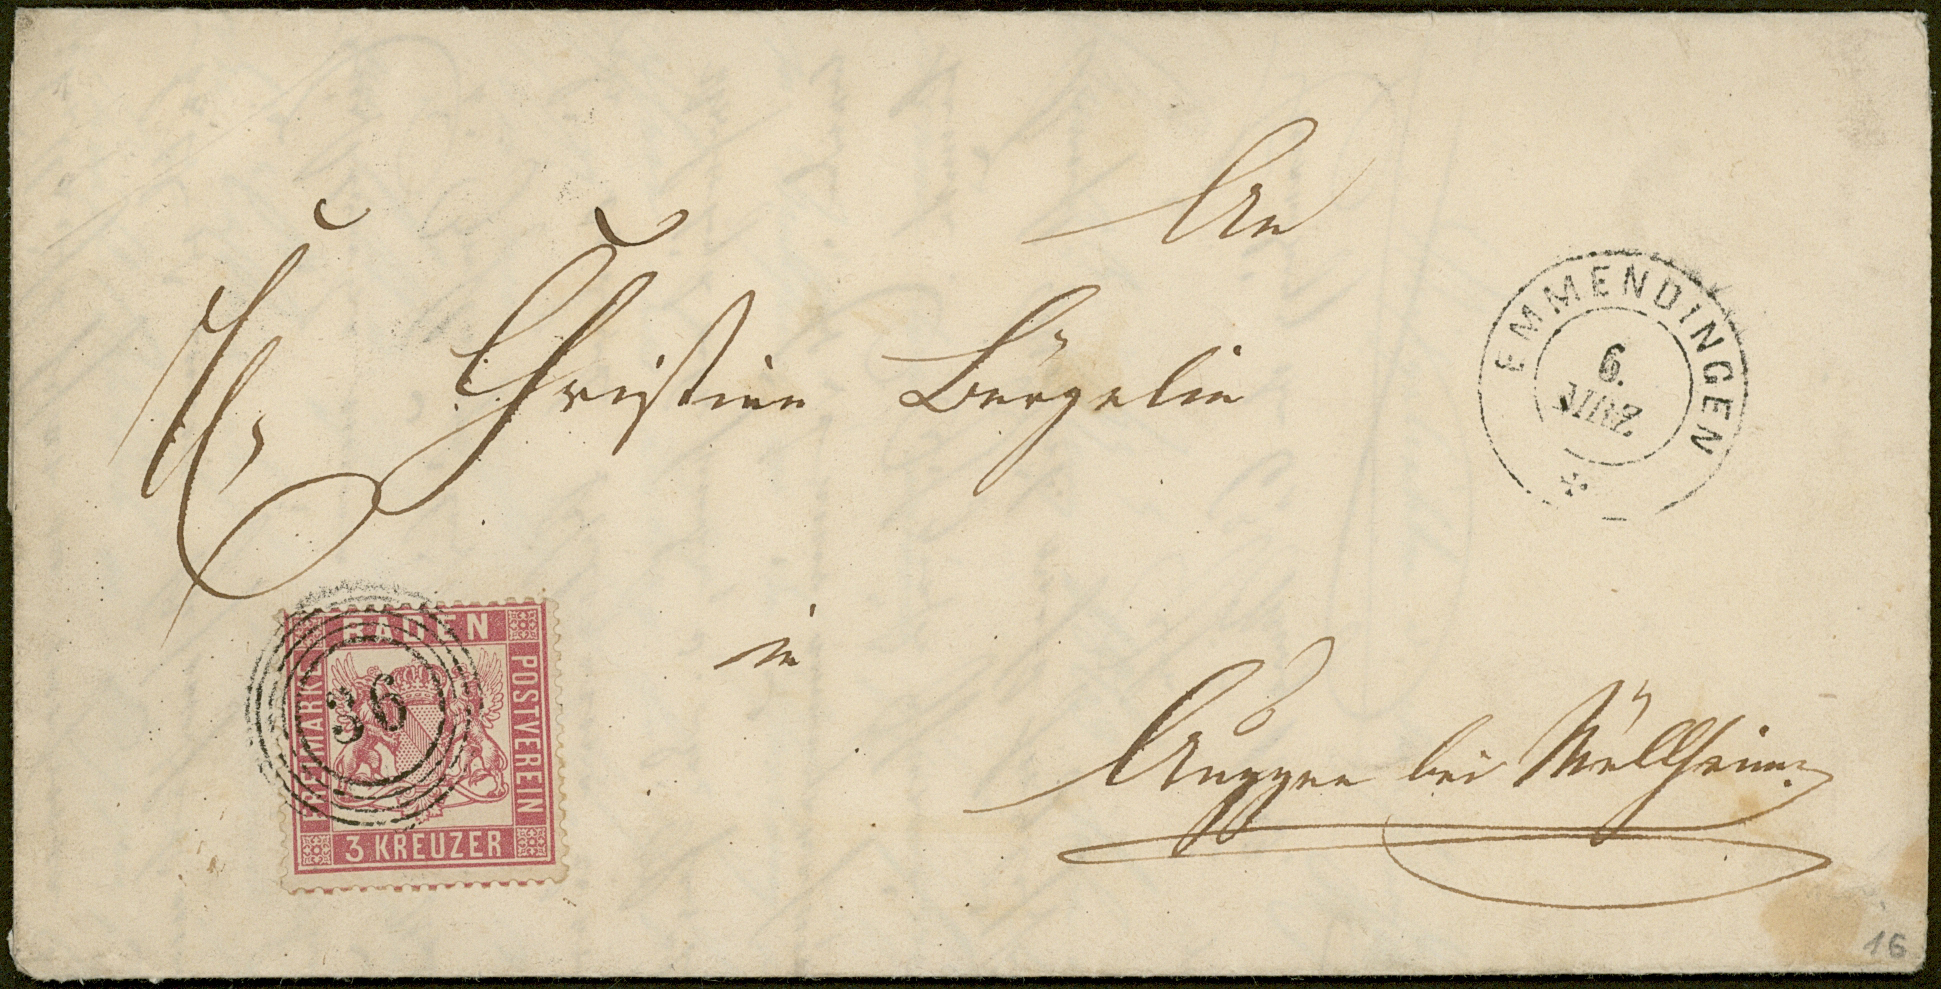 An
Hr Christian Bürgelin
EMMENDINGEN
6.
MRZ.
BADEN
FREIMARKE
POSTVEREIN
36
3 KREUZER
in
Auggen bei Müllheim.
16